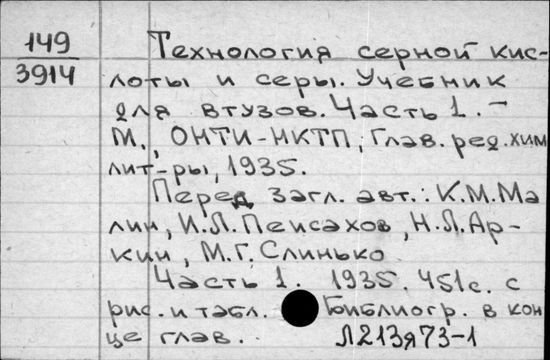 149
3914
Технология серной кис-
лоты и серы. Учебник
для втузов. Часть 1. -
М., ОНТИ-НКТП, Глав. ред. хим
лит-ры, 1935.
Перед загл. авт.: К.М.Ма
лин, И.Л.Пейсахов, Н.Л.Ар-
кин, М.Г. Слинько
Часть 1. 1935. 451с. с
рис. и табл. Библиогр. в кон
це глав. Л213я73-1